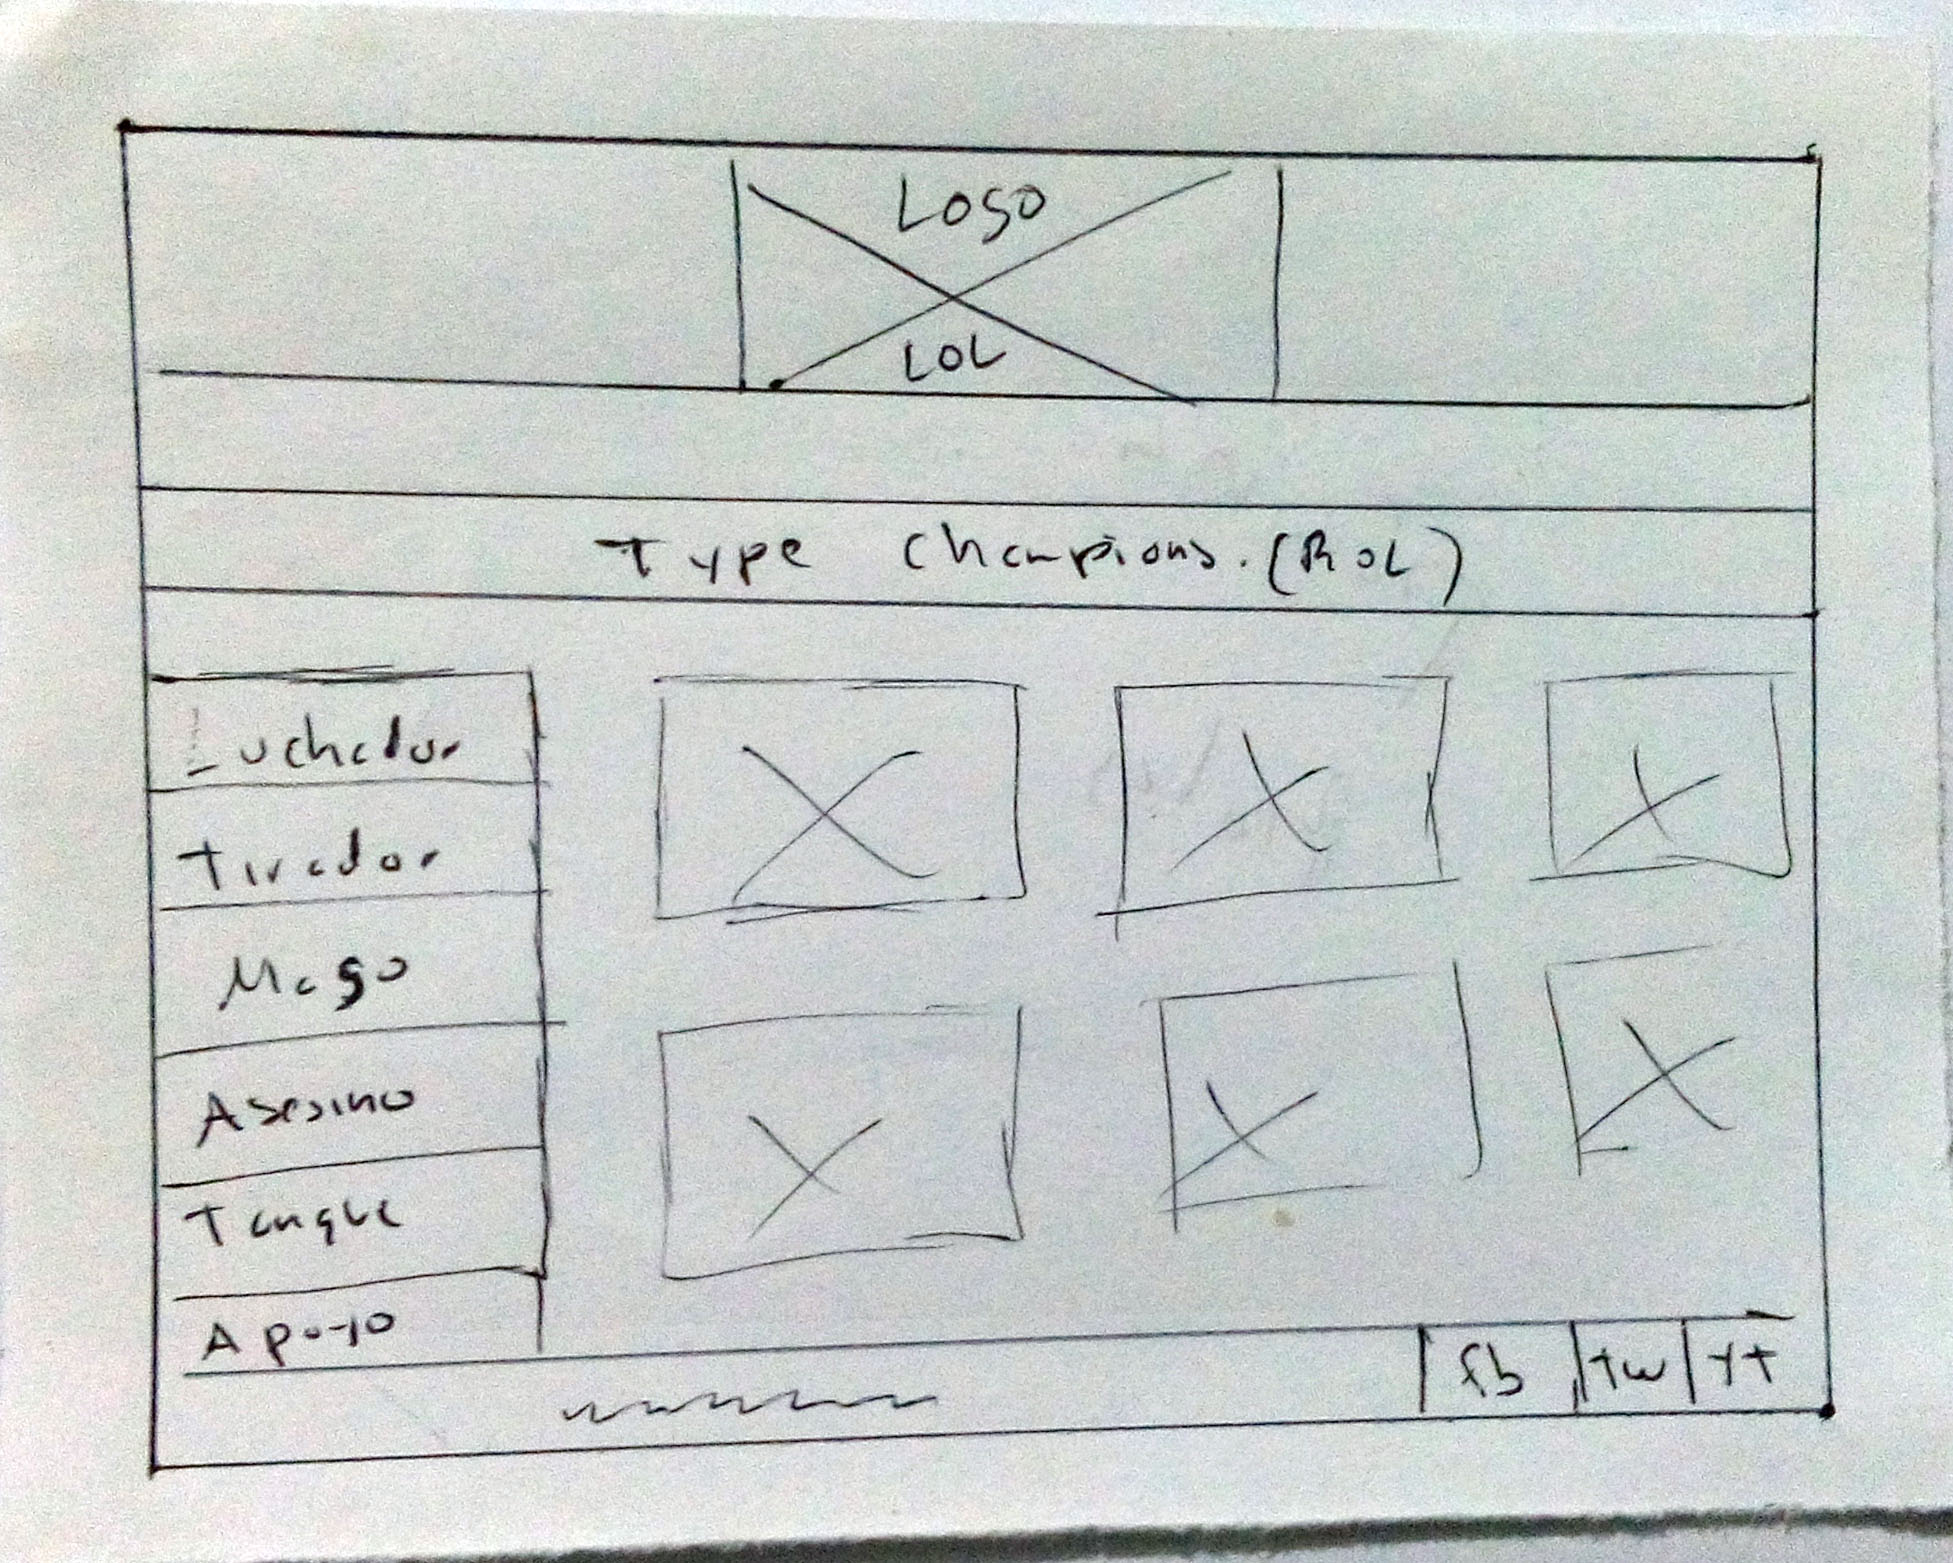 Logo
LOL
Type Champions. (ROL)
Luchador
Tirador
Mago
Asesino
Tanque
Apoyo
fb tw yt